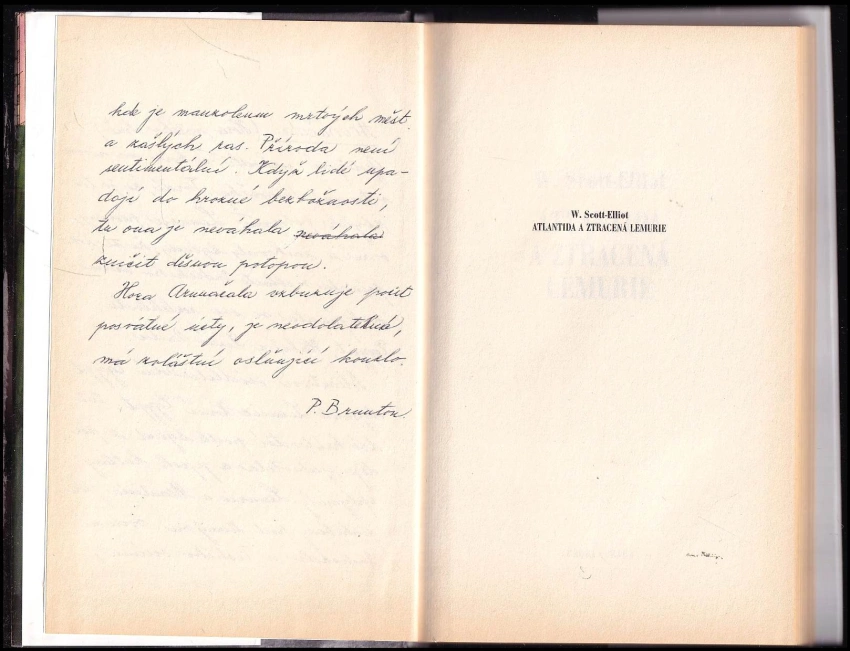 kde je mauzoleum mrtvých měst
a zašlých ras. Příroda není
sentimentální. Když lidé upa-
dají do hrozné bezbožnosti,
tu ona je neváhala neváhala
zničit děsnou potopou.
Hora Arunáčala vzbuzuje pocit
posvátné úcty, je neodolatelná,
má zvláštní oslňující kouzlo.
P. Brunton.
W. Scott-Elliot
ATLANTIDA A ZTRACENÁ LEMURIE